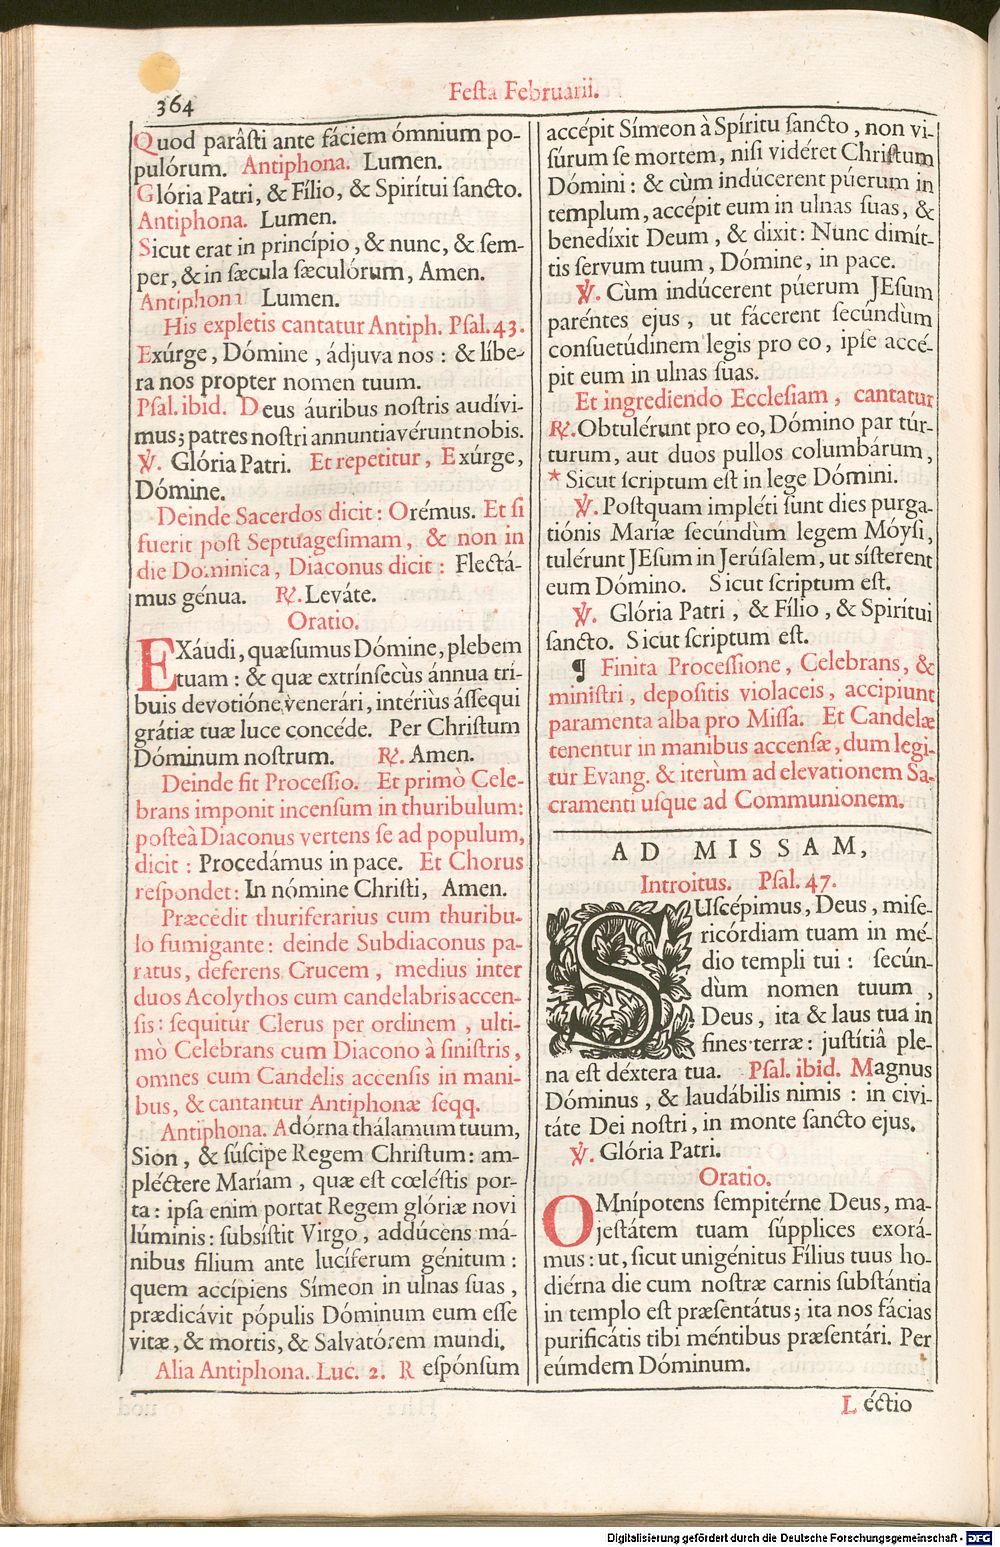 364
Festa Februarii.
Quod parâsti ante fáciem ómnium po-
pulórum. Antiphona. Lumen.
Glória Patri, & Fílio, & Spirítui sancto.
Antiphona. Lumen.
Sicut erat in princípio, & nunc, & sem-
per, & in sæcula sæculórum, Amen.
Antiphona Lumen.
His expletis cantatur Antiph. Psal. 43.
Exúrge, Dómine, ádjuva nos: & líbe-
ra nos propter nomen tuum.
Psal. ibid. Deus áuribus nostris audívi-
mus; patres nostri annuntiavérunt nobis.
℣. Glória Patri. Et repetitur, Exúrge,
Dómine.
Deinde Sacerdos dicit: Orémus. Et si
fuerit post Septuagesimam, & non in
die Dominica, Diaconus dicit: Flectá-
mus génua. ℟. Leváte.
Oratio.
EXáudi, quæsumus Dómine, plebem
tuam: & quæ extrínsecùs ánnua trí-
buis devotióne venerári, intériùs ássequi
grátiæ tuæ luce concéde. Per Christum
Dóminum nostrum. ℟. Amen.
Deinde fit Processio. Et primò Cele-
brans imponit incensum in thuribulum:
posteà Diaconus vertens se ad populum,
dicit: Procedámus in pace. Et Chorus
respondet: In nómine Christi, Amen.
Præcedit thuriferarius cum thuribu-
lo fumigante: deinde Subdiaconus pa-
ratus, deferens Crucem, medius inter
duos Acolythos cum candelabris accen-
sis: sequitur Clerus per ordinem, ulti-
mò Celebrans cum Diacono à sinistris,
omnes cum Candelis accensis in mani-
bus, & cantantur Antiphonæ seqq.
Antiphona. Adórna thálamum tuum,
Sion, & súscipe Regem Christum: am-
pléctere Maríam, quæ est cœléstis por-
ta: ipsa enim portat Regem glóriæ novi
lúminis: subsístit Virgo, addúcens má-
nibus filium ante lucíferum génitum:
quem accípiens Símeon in ulnas suas,
prædicávit pópulis Dóminum eum esse
vitæ, & mortis, & Salvatórem mundi.
Alia Antiphona. Luc. 2. Respónsum
accépit Símeon à Spíritu sancto, non vi-
súrum se mortem, nisi vidéret Christum
Dómini: & cùm indúcerent púerum in
templum, accépit eum in ulnas suas, &
benedíxit Deum, & dixit: Nunc dimít-
tis servum tuum, Dómine, in pace.
℣. Cùm indúcerent púerum JEsum
paréntes ejus, ut fácerent secúndùm
consuetúdinem legis pro eo, ipse accé-
pit eum in ulnas suas.
Et ingrediendo Ecclesiam, cantatur
℟. Obtulérunt pro eo, Dómino par túr-
turum, aut duos pullos columbárum,
* Sicut scriptum est in lege Dómini.
℣. Postquam impléti sunt dies purga-
tiónis Mariæ secúndùm legem Móysi,
tulérunt JEsum in Jerúsalem, ut sísterent
eum Dómino. Sicut scriptum est.
℣. Glória Patri, & Fílio, & Spirítui
sancto. Sicut scriptum est.
¶ Finita Processione, Celebrans, &
ministri, depositis violaceis, accipiunt
paramenta alba pro Missa. Et Candelæ
tenentur in manibus accensæ, dum legi-
tur Evang. & iterùm ad elevationem Sa-
cramenti usque ad Communionem.
AD MISSAM,
Introitus. Psal. 47.
SUscépimus, Deus, mise-
ricórdiam tuam in mé-
dio templi tui: secún-
dùm nomen tuum,
Deus, ita & laus tua in
fines terræ: justítiâ ple-
na est déxtera tua. Psal. ibid. Magnus
Dóminus, & laudábilis nimis: in civi-
táte Dei nostri, in monte sancto ejus.
℣. Glória Patri.
Oratio.
OMnípotens sempitérne Deus, ma-
jestátem tuam súpplices exorá-
mus: ut, sicut unigénitus Fílius tuus ho-
diérna die cum nostræ carnis substántia
in templo est præsentátus; ita nos fácias
purificátis tibi méntibus præsentári. Per
eúmdem Dóminum.
Léctio
Digitalisierung gefördert durch die Deutsche Forschungsgemeinschaft - DFG